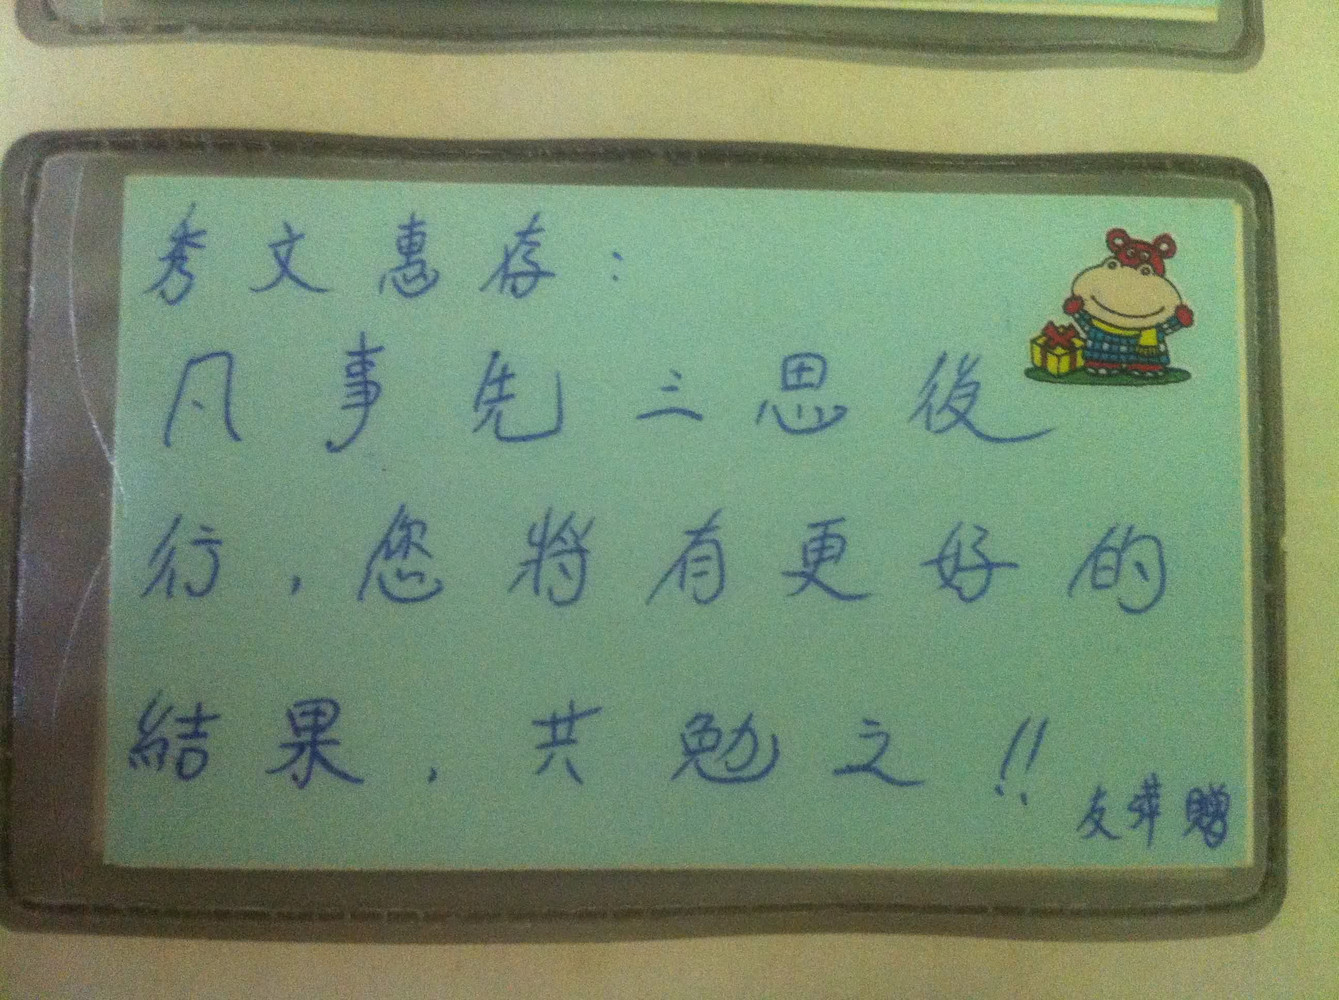 秀文惠存：
凡事先三思後
行，您將有更好的
結果，共勉之!!
友萍贈